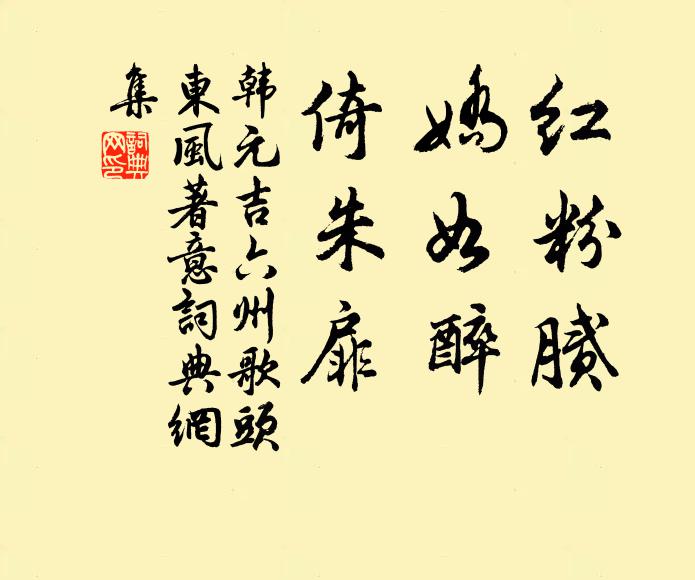 红粉膩
嬌如醉
倚朱扉
韩元吉六州歌頭
東風著意詞典網
集
詞典网印